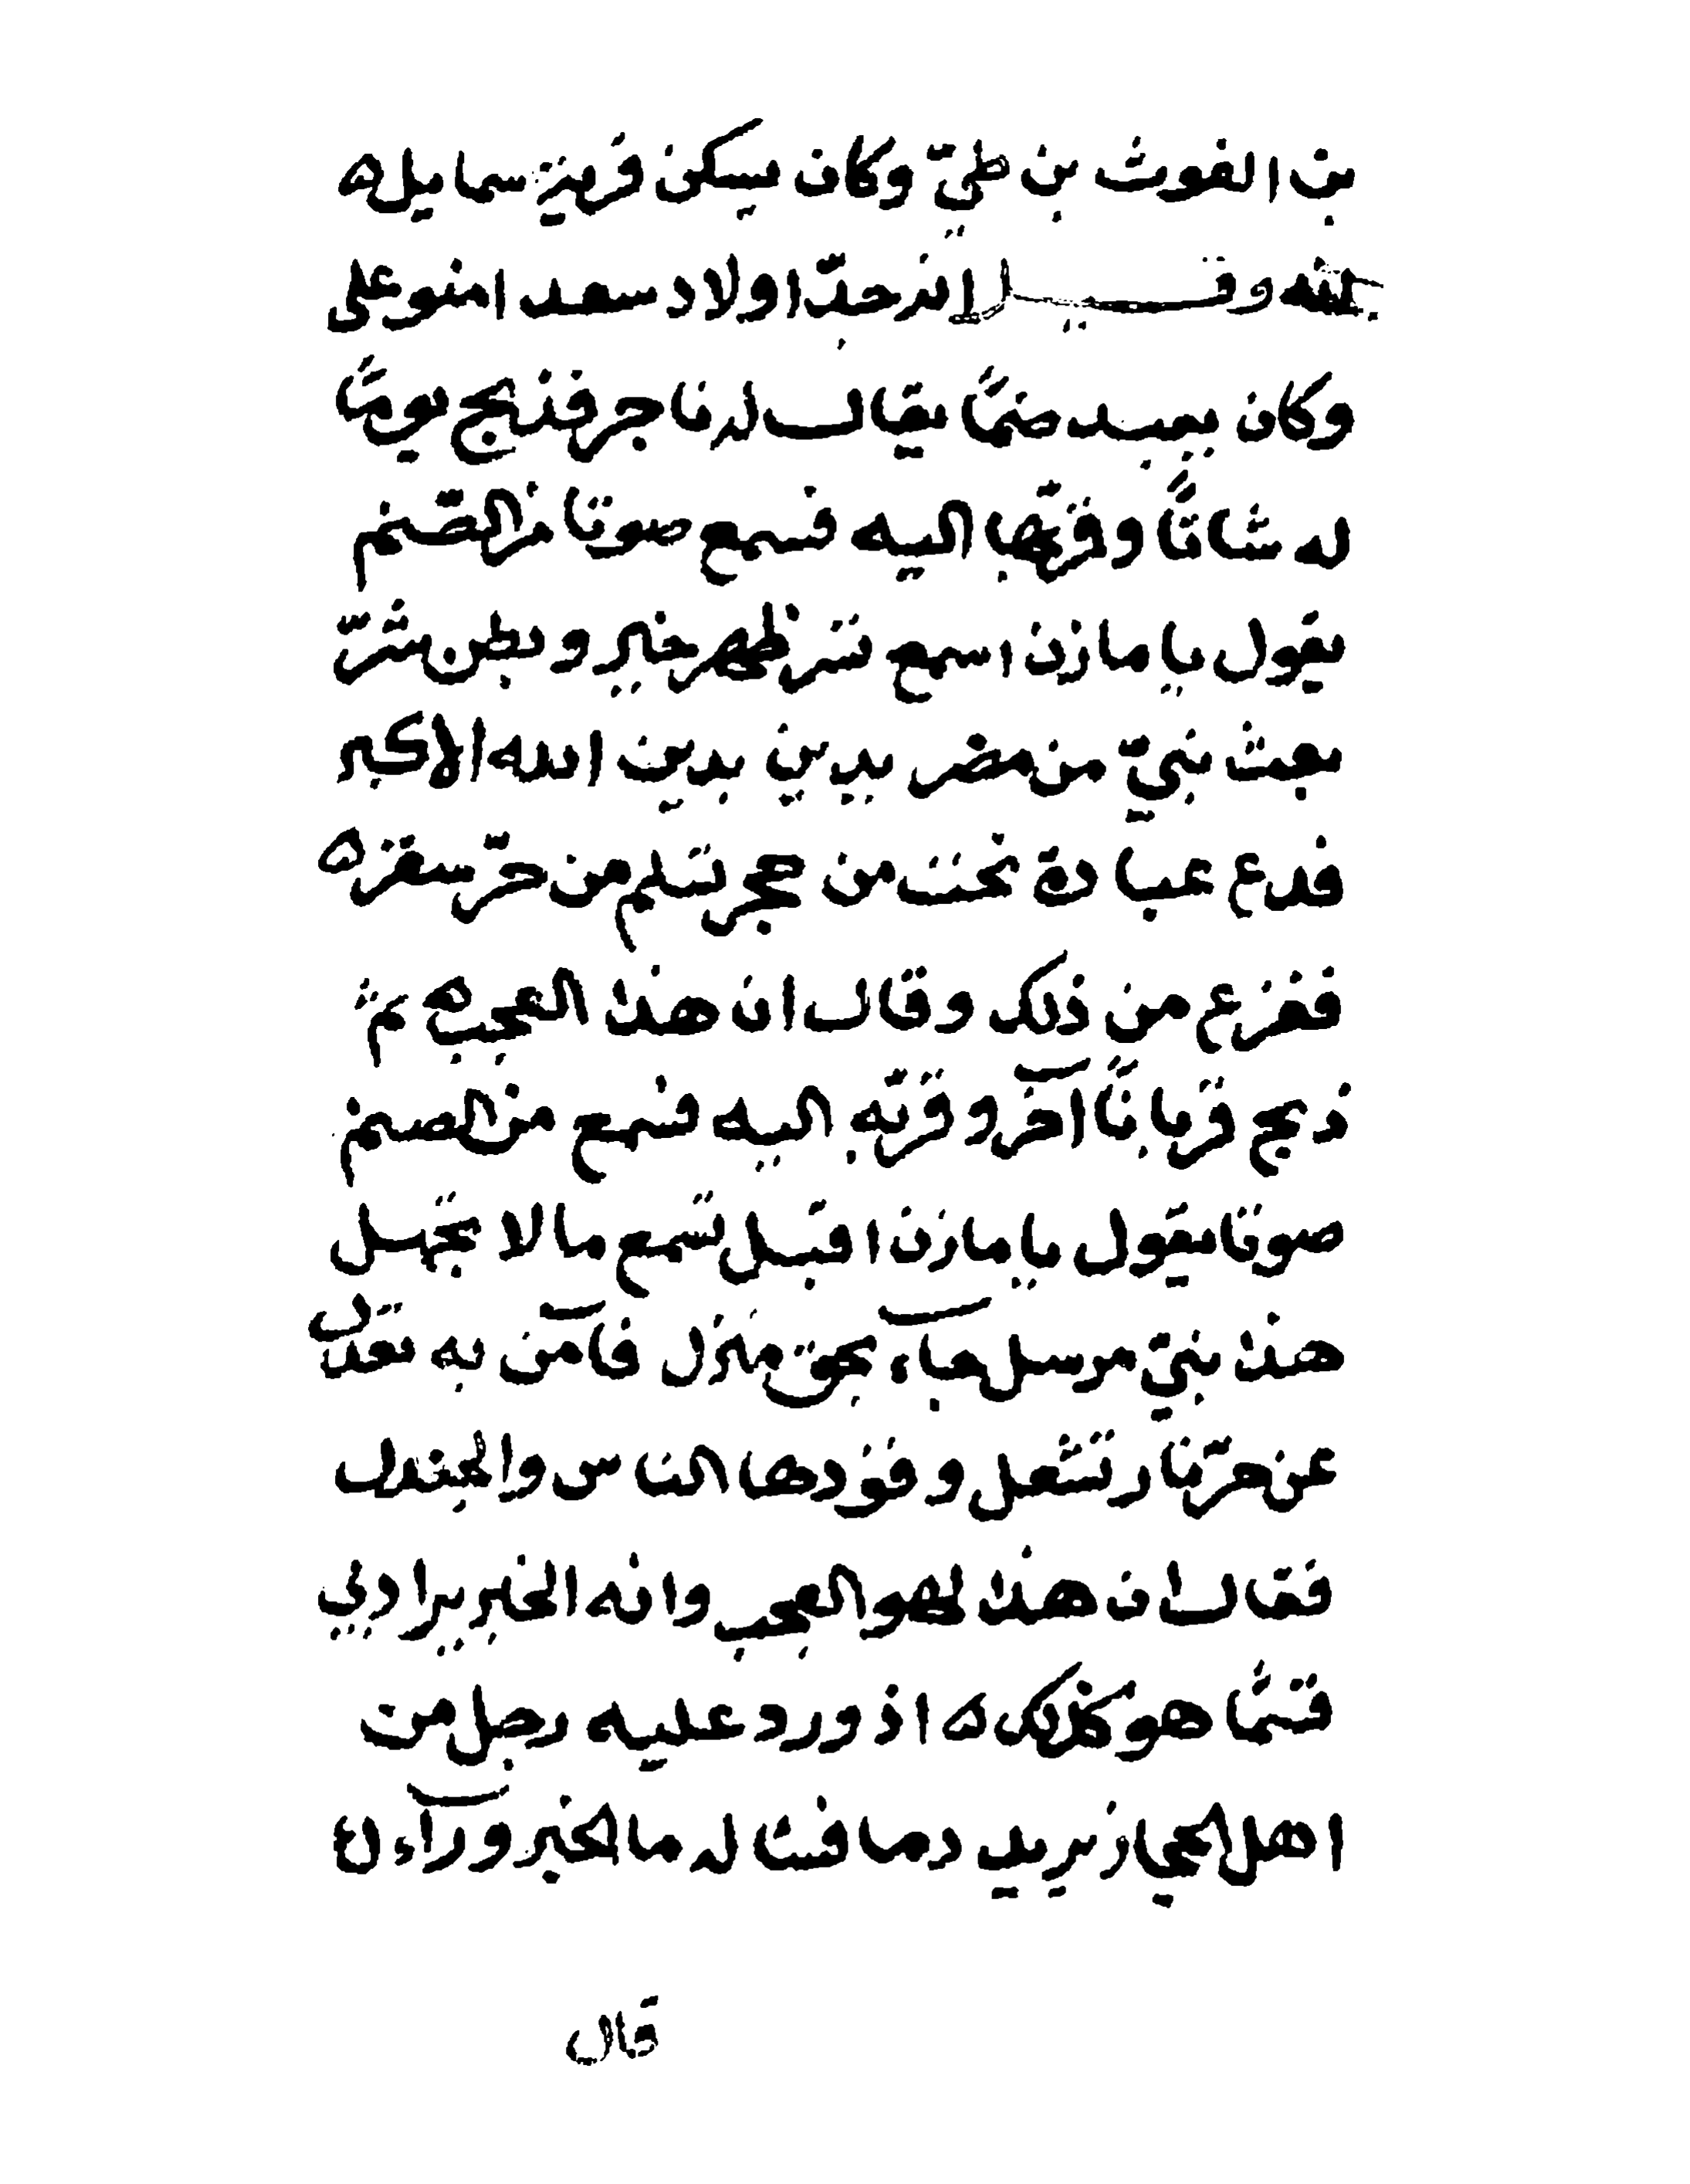 بن الغوث بن طيّ وكان يسكن قرية سمايل ه
وقيل انه جدّ اولاد سعد امنوعلى
وكان يعبد صنمًا يقال له ناجر فذبح يومًا
له شاتًا وقرّبها اليه فسمع صوتا من الصّنم
يقول يا مازن اسمع تسر ظهر خير وبطن شرّ
بعث نبيّ من مضر يدين بدين الله الاكبر
فدع عبادة نحت من حجر تسلم من حرّ سقر ه
ففزع من ذلك وقال ان هذا العجب ه ثم
ذبح قربانًا آخر وقرّبه اليه فسمع من الصنم
صوتا يقول يا مازن اقبل تسمع ما لا تجهل
هذا نبيّ مرسل جاء بحق منزل فآمن به تعدل
عن حرّ نار تشعل وقودها الناس والجندل
فقال ان هذا لهو العجب وانه الخير يراد بي
فبينما هو كذلك ه اذ ورد عليه رجل من
اهل الحجاز يريد دما فقال له ما الخبر ورآءك
قال